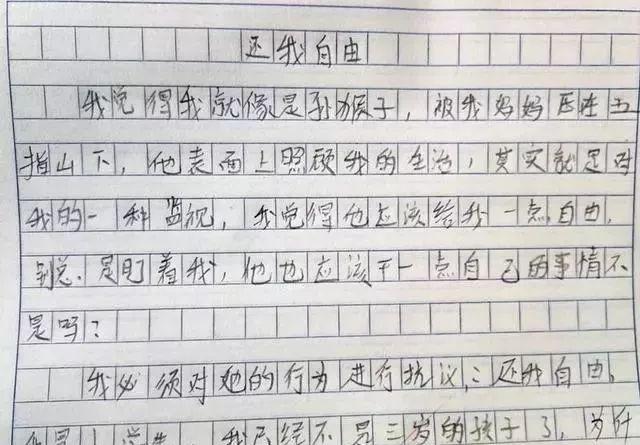 还我自由
我觉得我就像是孙猴子，被我妈妈压在五
指山下，他表面上照顾我的生活，其实就是对
我的一种监视，我觉得他应该给我一点自由，
别总是盯着我，他也应该干一点自己的事情不
是吗？
我必须对她的行为进行抗议，还我自由。
我已经不是三岁的孩子了，为什